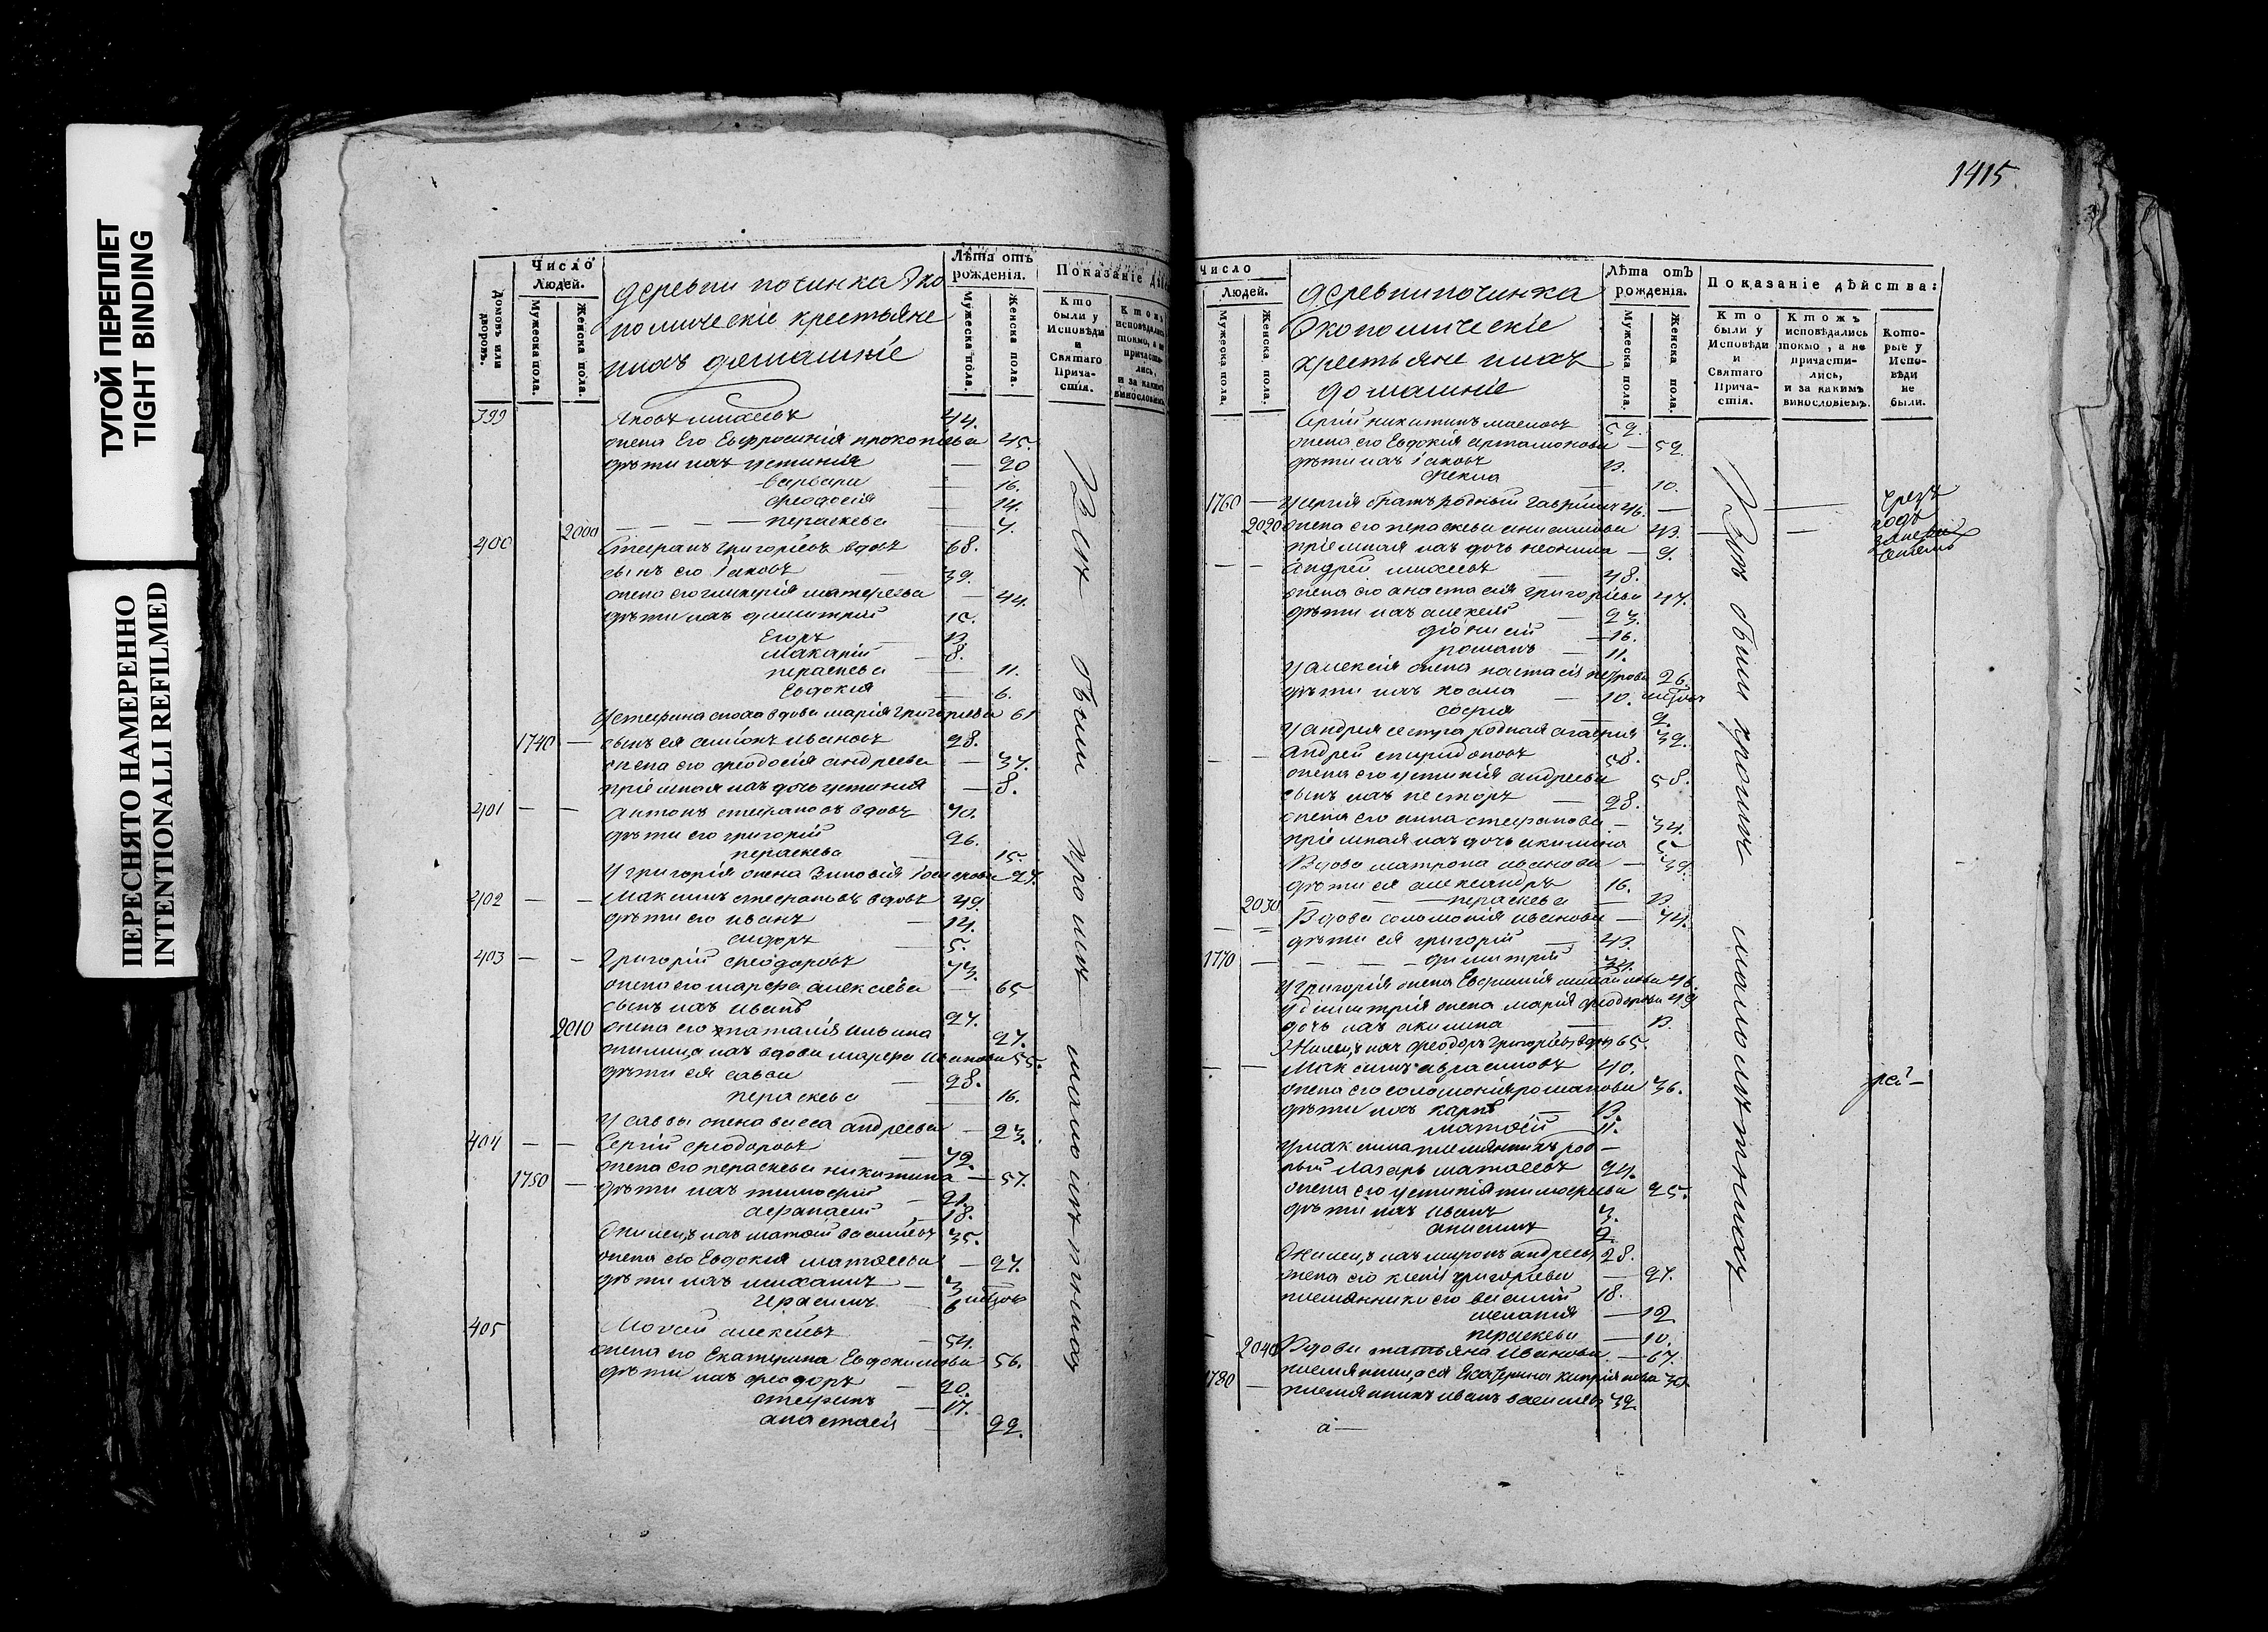 ТУГОЙ ПЕРЕПЛЕТ
TIGHT BINDING
ПЕРЕСНЯТО НАМЕРЕННО
INTENTIONALLI REFILMED
Домовъ или дворовъ.
Число Людей.
Мужеска пола.
Женска пола.
деревни починка Эко
номическіе крестьяне
ихъ домашніе
Лѣта отъ рожденія.
Мужеска пола.
Женска пола.
Показаніе
Кто были у Исповѣди и Святаго Прича-стія.
399 Яковъ 44.
жена Его Евфросинія прокопьева 45.
дѣти ихъ устинія — 20
варвара — 16.
феодосія — 14.
2000 — — — пераскева — 7.
400 Стефанъ григорьевъ вдовъ 68.
сынъ его Іаковъ — 39.
жена его гликерія — 44.
дѣти ихъ димитрій 15.
Егоръ — 13
макарій — 8.
пераскева — 11.
Евдокія — 6.
у стефана сноха вдова марія григорьева 61
1740 — сынъ ея симіонъ ивановъ 28.
жена его феодосія андреева — 37.
пріемная ихъ дочь устинія — 8.
401 — — Антонъ стефановъ вдовъ 70.
дѣти его григорій 26.
пераскева — 15.
у григорія жена Зиновія 27.
402 — — Максимъ стефановъ вдовъ 49.
дѣти его иванъ — 14.
сидоръ — 5.
403 — — Григорій феодоровъ 73.
жена его марфа алексіева — 65
сынъ ихъ иванъ 27.
2010 жена его наталія ильина 27.
жилица ихъ вдова марфа иванова 55.
дѣти ея савва — 28.
пераскева — 16.
у саввы жена васса андреева — 23.
404 — — Сергій феодоровъ — 72.
жена его пераскева никитина — 57.
1750 — дѣти ихъ тимофей — 21.
афанасей — 18.
Жилецъ ихъ матѳей васильевъ 35.
жена его Евдокія матѳеева — 27.
дѣти ихъ михаилъ — 3
Герасимъ — 6
405 алексѣевъ — 54.
жена его Екатерина Евдокимова 56.
дѣти ихъ феодоръ — 20.
стефанъ — 17.
анастасія — 22.
Всѣ были кромѣ малолѣтныхъ
1415.
Число Людей.
Мужеска пола.
Женска пола.
деревни починка
Экономическіе
крестьяне ихъ
домашніе
Лѣта отъ рожденія.
Мужеска пола.
Женска пола.
Показаніе дѣйства:
Кто были у Исповѣди и Святаго Прича-стія.
Ктожъ исповѣдались токмо, а не причасти-лись, и за какимъ винословіемъ.
Кото-рые у Испо-вѣди не были.
Сергій никитинъ 59.
жена его Евдокія артамонова — 59.
дѣти ихъ Іаковъ 13.
фекла — 10.
1760 — у сергія братъ родный гавріилъ 46. —
2020 жена его пераскева анисимова 43. — —
пріемная ихъ дочь неонила — 9.
чрезъ
годъ
— — Андрей 48.
жена его анастасія григорьева 47.
дѣти ихъ алексей — 23.
діонисій — 16.
романъ — 11.
у алексія жена настасія петрова 26.
дѣти ихъ косма — 10.
софія 2.
у андрея сестра родная агафія 39.
— — Андрей спиридоновъ 58.
жена его устинія андреева 58.
сынъ ихъ несторъ — 28.
жена его анна стефанова — 34.
пріемная ихъ дочь акилина 5
Вдова матрона иванова — 39.
дѣти ея александръ 16.
2030 — — — пераскева — 13.
— — Вдова соломонія иванова — 74.
дѣти ея григорій — 43.
1770 — — — — димитрій
у григорія жена Евфимія 46.
у димитрія жена марія феодорова 49
дочь ихъ акилина — 13.
Жилецъ ихъ феодоръ григорьевъ вдовъ 65.
— — Максимъ 40.
жена его соломонія романова 36.
дѣти ихъ карпъ — 13.
матѳей — 11.
у максима племянникъ род —
ный Лазарь матѳеевъ 24.
жена его устинія тимофеева 25.
дѣти ихъ иванъ 3.
анисимъ 2
Жилецъ ихъ миронъ андреевъ 28.
жена его ксенія григорьева — 27.
племянники его василій 18.
меланія — 12
пераскева — 10.
2040 Вдова татьяна иванова — 67.
племянница ея Екатерина кипріянова
1780 — племянникъ иванъ васильевъ 32.
а—
Всѣ были кромѣ малолѣтныхъ